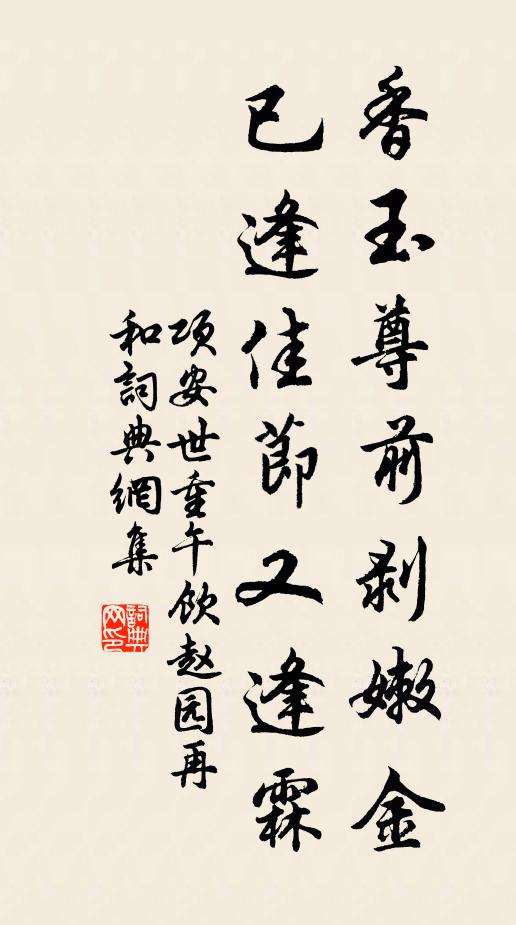 香玉尊前剥嫩金
已逢佳節又逢霖
项安世重午饮赵园再
和詞典網集
詞典
网印